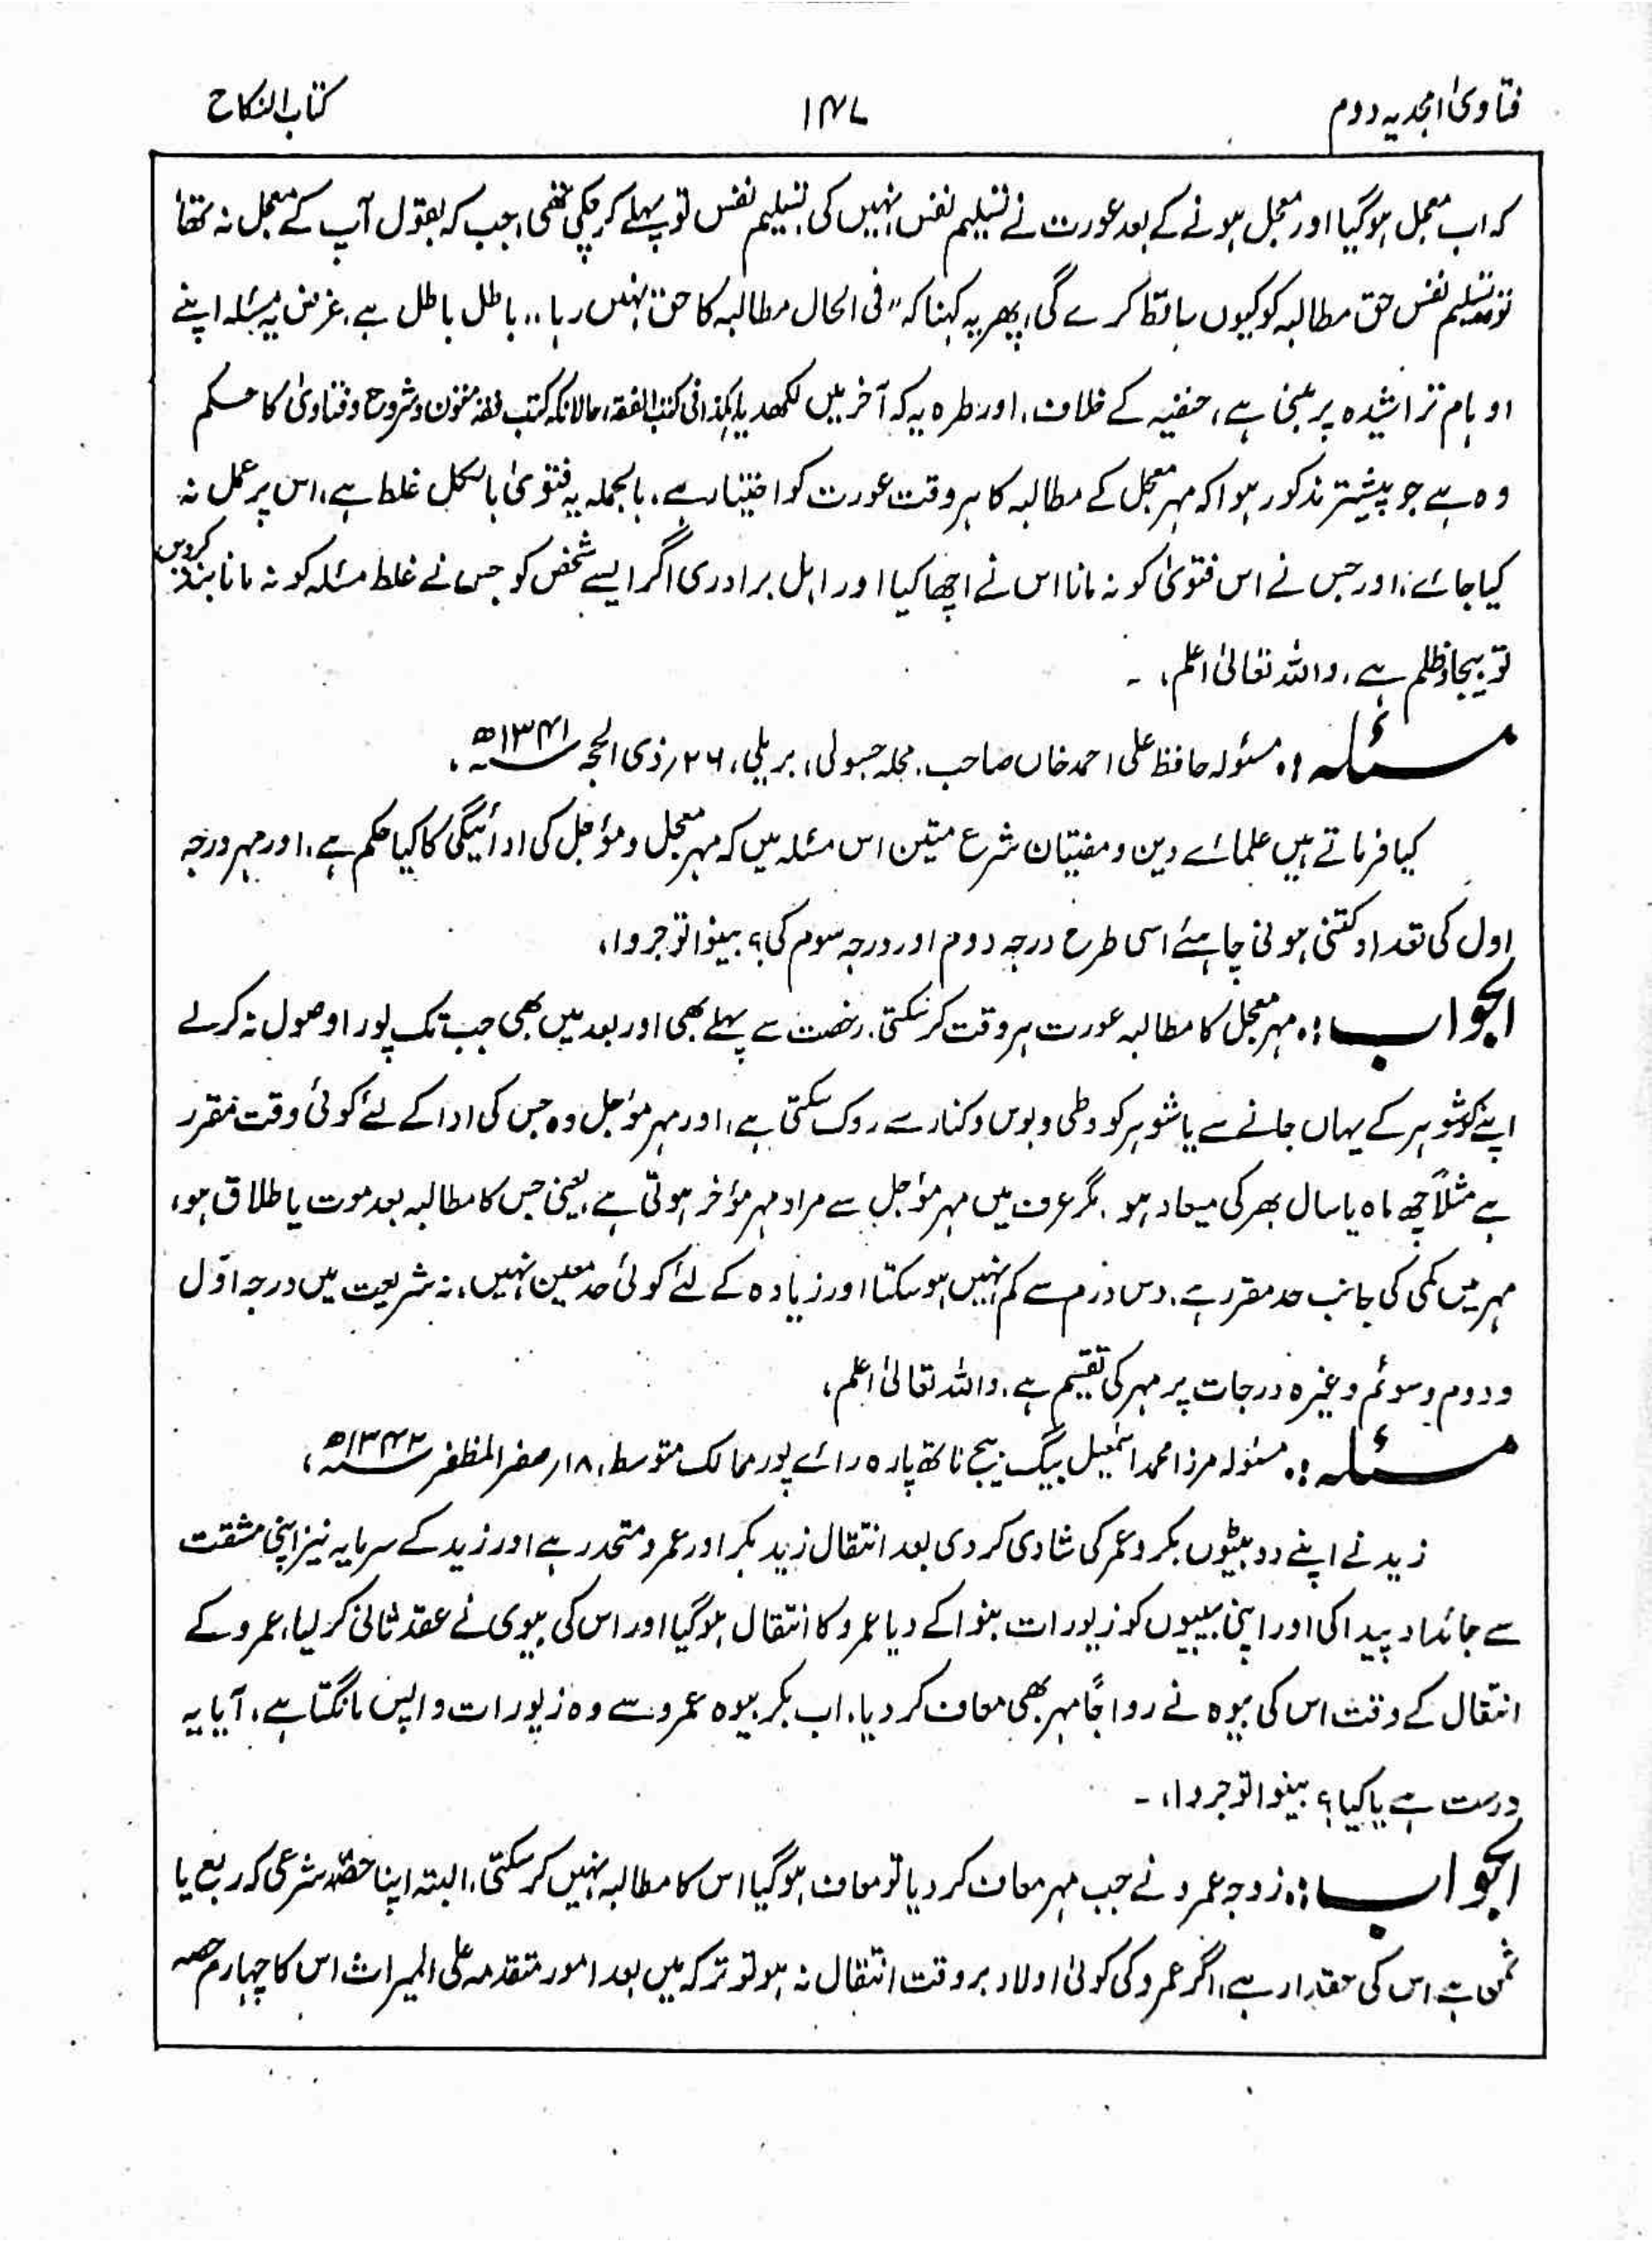 فتاویٰ امجدیہ دوم
۱۴۷
کتاب النکاح
کہ اب معجل ہوگیا اور معجل ہونے کے بعد عورت نے تسلیم نفس نہیں کی تسلیم نفس تو پہلے کرچکی تھی، جب کہ بقول آپ کے معجل نہ تھا
تو تسلیم نفس حق مطالبہ کو کیوں ساقط کرے گی، پھر یہ کہنا کہ "فی الحال مطالبہ کا حق نہیں رہا" باطل باطل ہے، غرض یہ مسئلہ اپنے
اوہام تراشیدہ پر مبنی ہے، حنفیہ کے خلاف، اور طرہ یہ کہ آخر میں لکھ دیا ہکذا فی کتب الفقہ، حالانکہ کتب فقہ متون و شروح و فتاویٰ کا حکم
وہ ہے جو پیشتر مذکور ہوا کہ مہر معجل کے مطالبہ کا ہر وقت عورت کو اختیار ہے، بالجملہ یہ فتویٰ بالکل غلط ہے، اس پر عمل نہ
کیا جائے، اور جس نے اس فتویٰ کو نہ مانا اس نے اچھا کیا اور اہل برادری اگر ایسے شخص کو جس نے غلط مسئلہ کو نہ مانا بند کردیں
تو بیجا و ظلم ہے، واللہ تعالیٰ اعلم، ۔
مسئلہ :۔ مسئولہ حافظ علی احمد خاں صاحب، محلہ جسولی، بریلی، ۲۶؍ ذی الحجہ ۱۳۴۱ھ،
کیا فرماتے ہیں علمائے دین و مفتیان شرع متین اس مسئلہ میں کہ مہر معجل و مؤجل کی ادائیگی کا کیا حکم ہے، اور مہر درجہ
اول کی تعداد کتنی ہونی چاہئے اسی طرح درجہ دوم اور درجہ سوم کی؟ بینوا توجروا،
الجواب :۔ مہر معجل کا مطالبہ عورت ہر وقت کرسکتی، رخصت سے پہلے بھی اور بعد میں بھی جب تک پورا وصول نہ کرلے
اپنے کو شوہر کے یہاں جانے سے یا شوہر کو وطی و بوس و کنار سے روک سکتی ہے، اور مہر مؤجل وہ جس کی ادا کے لئے کوئی وقت مقرر
ہے مثلاً چھ ماہ یا سال بھر کی میعاد ہو، مگر عرف میں مہر مؤجل سے مراد مہر مؤخر ہوتی ہے، یعنی جس کا مطالبہ بعد موت یا طلاق ہو،
مہر میں کمی کی جانب حد مقرر ہے، دس درم سے کم نہیں ہوسکتا اور زیادہ کے لئے کوئی حد معین نہیں، نہ شریعت میں درجہ اوّل
و دوم و سوئم وغیرہ درجات پر مہر کی تقسیم ہے، واللہ تعالیٰ اعلم،
مسئلہ :۔ مسئولہ مرزا محمد اسمٰعیل بیگ بیج ناتھ پارہ رائے پور ممالک متوسط، ۱۸؍ صفر المظفر ۱۳۴۲ھ،
زید نے اپنے دو بیٹوں بکر و عمر کی شادی کردی بعد انتقال زید بکر اور عمرو متحد رہے اور زید کے سرمایہ نیز اپنی مشقت
سے جائداد پیدا کی اور اپنی بیبیوں کو زیورات بنوا کے دیا عمرو کا انتقال ہوگیا اور اس کی بیوی نے عقد ثانی کرلیا، عمرو کے
انتقال کے وقت اس کی بیوہ نے رواجًا مہر بھی معاف کردیا، اب بکر بیوہ عمرو سے وہ زیورات واپس مانگتا ہے، آیا یہ
درست ہے یا کیا؟ بینوا توجروا، ۔
الجواب :۔ زوجہ عمرو نے جب مہر معاف کردیا تو معاف ہوگیا اس کا مطالبہ نہیں کرسکتی، البتہ اپنا حصّہ شرعی کہ ربع یا
ثمن ہے اس کی حقدار ہے، اگر عمرو کی کوئی اولاد بر وقت انتقال نہ ہو تو ترکہ میں بعد امور متقدمہ علی المیراث اس کا چہارم حصہ